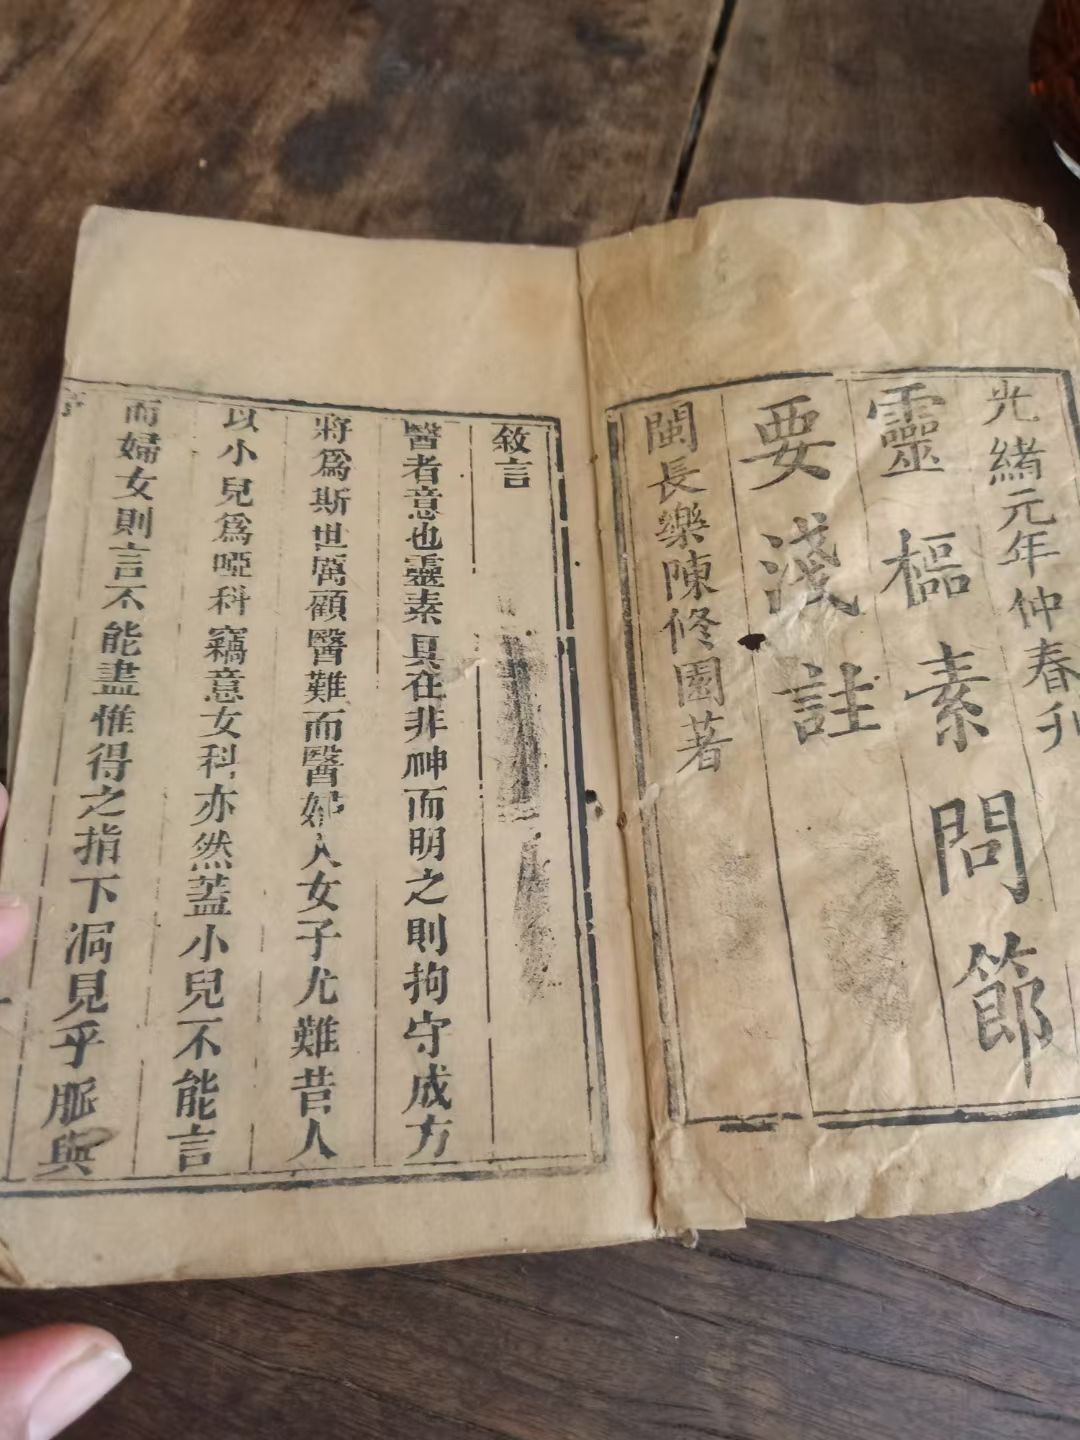 光緒元年仲春刊
靈樞素問節
要淺註
閩長樂陳修園著
敘言
醫者意也靈素具在非神而明之則拘守成方
將爲斯世厲顧醫難而醫婦人女子尤難昔人
以小兒爲啞科竊意女科亦然蓋小兒不能言
而婦女則言不能盡惟得之指下洞見乎脈與